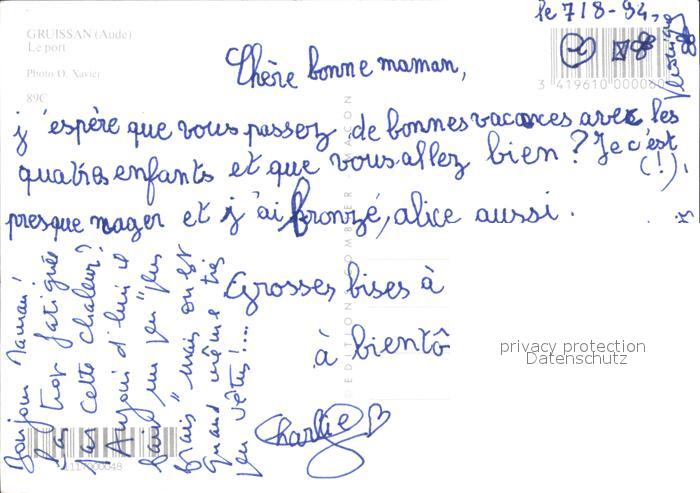 GRUISSAN (Aude)
Le port
Photo O. Xavier
89C
le 7/8-94,
3 419610 00006
Chère bonne maman,
j'espère que vous passez de bonnes vacances avec les
quatres enfants et que vous allez bien ? Je c'est
(!),
presque nager et j'ai bronzé, alice aussi.
Grosses bises à
à bientô
Charlie
Bonjour Maman!
Pas trop fatiguée
par cette chaleur?
Aujourd'hui il
fait un peu "plus
frais" mais on est
quand même très
peu vêtus!...
privacy protection
Datenschutz